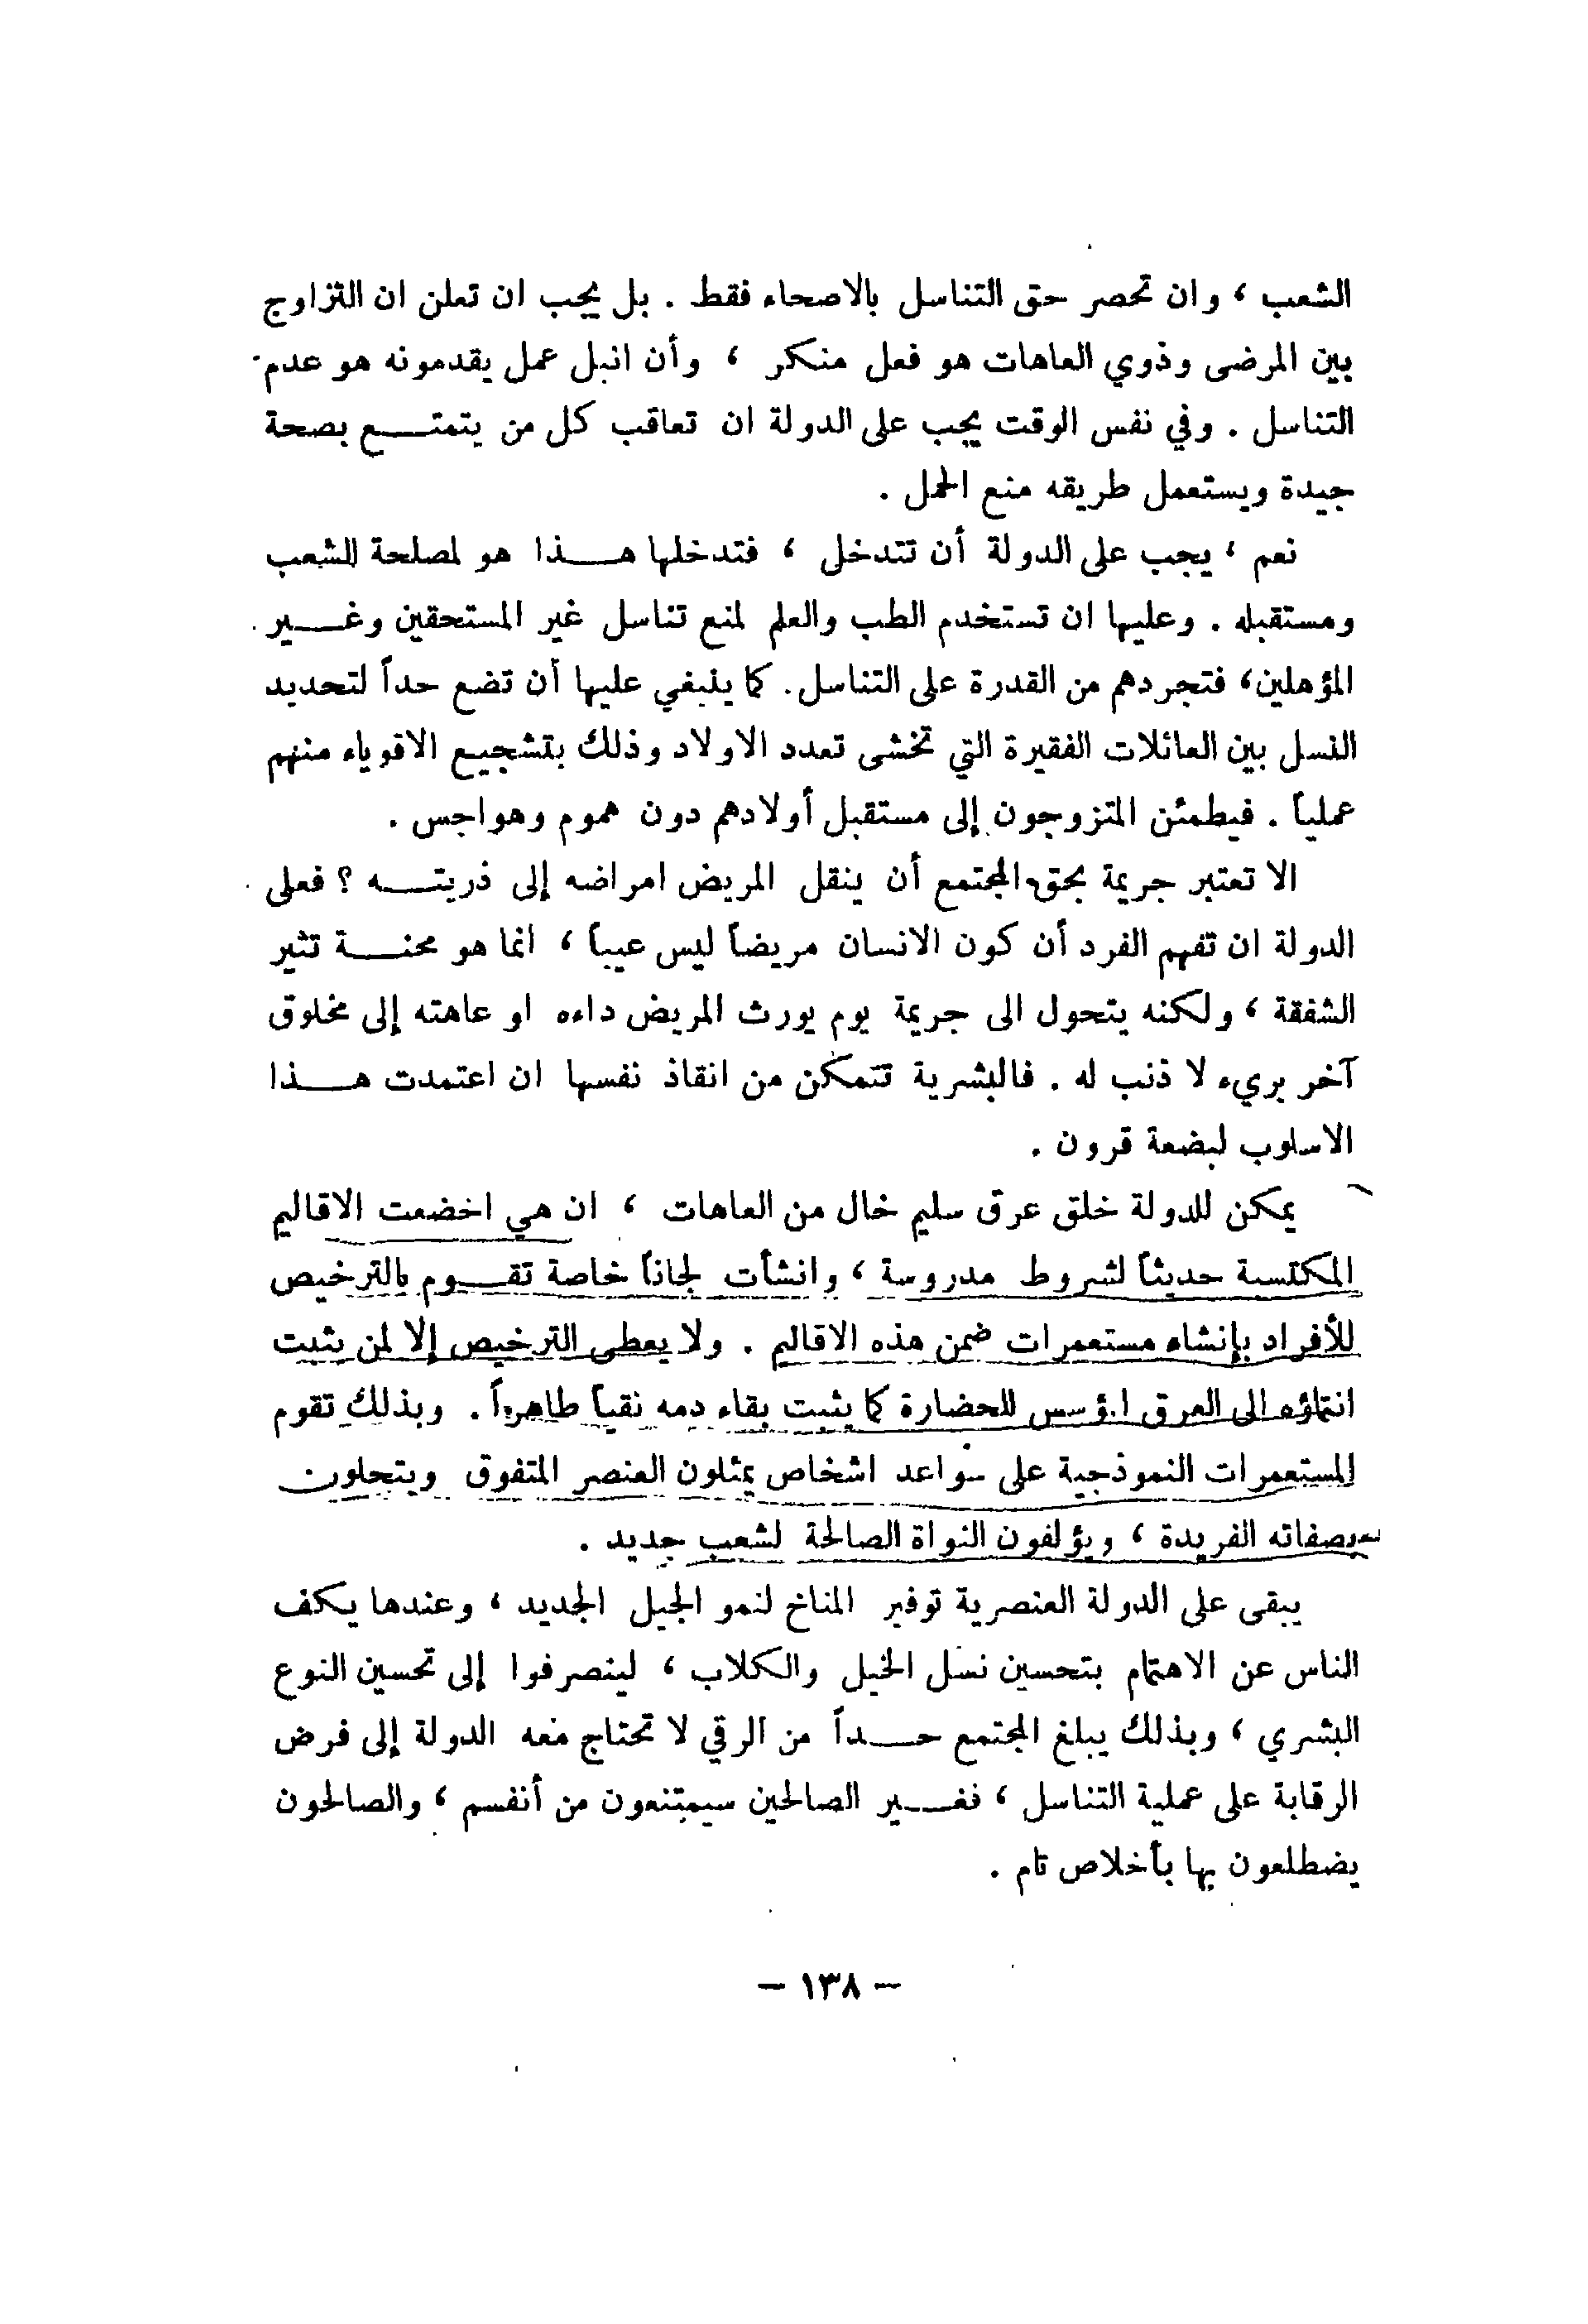 الشعب ، وان تحصر حق التناسل بالاصحاء فقط . بل يجب ان تعلن ان التزاوج
بين المرضى وذوي العاهات هو فعل منكر ، وأن انبل عمل يقدمونه هو عدم
التناسل . وفي نفس الوقت يجب على الدولة ان تعاقب كل من يتمتـــع بصحة
جيدة ويستعمل طريقه منع الحمل .
نعم ، يجب على الدولة أن تتدخل ، فتدخلها هـــذا هو لمصلحة الشعب
ومستقبله . وعليها ان تستخدم الطب والعلم لمنع تناسل غير المستحقين وغـــير
المؤهلين، فتجردهم من القدرة على التناسل. كما ينبغي عليها أن تضع حداً لتحديد
النسل بين العائلات الفقيرة التي تخشى تعدد الاولاد وذلك بتشجيع الاقوياء منهم
عملياً . فيطمئن المتزوجون إلى مستقبل أولادهم دون هموم وهواجس .
الا تعتبر جريمة بحق المجتمع أن ينقل المريض امراضه إلى ذريتـــه ؟ فعلى
الدولة ان تفهم الفرد أن كون الانسان مريضاً ليس عيباً ، انما هو محنـــة تثير
الشفقة ، ولكنه يتحول الى جريمة يوم يورث المريض داءه او عاهته إلى مخلوق
آخر بريء لا ذنب له . فالبشرية تتمكن من انقاذ نفسها ان اعتمدت هـــذا
الاسلوب لبضعة قرون .
يمكن للدولة خلق عرق سليم خال من العاهات ، ان هي اخضعت الاقاليم
المكتسبة حديثاً لشروط مدروسة ، وانشأت لجاناً خاصة تقـــوم بالترخيص
للأفراد بإنشاء مستعمرات ضمن هذه الاقاليم . ولا يعطى الترخيص إلا لمن يثبت
انتماؤه الى العرق المؤسس للحضارة كما يثبت بقاء دمه نقياً طاهراً . وبذلك تقوم
المستعمرات النموذجية على سواعد اشخاص يمثلون العنصر المتفوق ويتحلون
بصفاته الفريدة ، ويؤلفون النواة الصالحة لشعب جديد .
يبقى على الدولة العنصرية توفير المناخ لنمو الجيل الجديد ، وعندها يكف
الناس عن الاهتمام بتحسين نسل الخيل والكلاب ، لينصرفوا إلى تحسين النوع
البشري ، وبذلك يبلغ المجتمع حـــداً من الرقي لا تحتاج معه الدولة إلى فرض
الرقابة على عملية التناسل ، فغـــير الصالحين سيمتنعون من أنفسم ، والصالحون
يضطلعون بها بأخلاص تام .
– ١٣٨ –